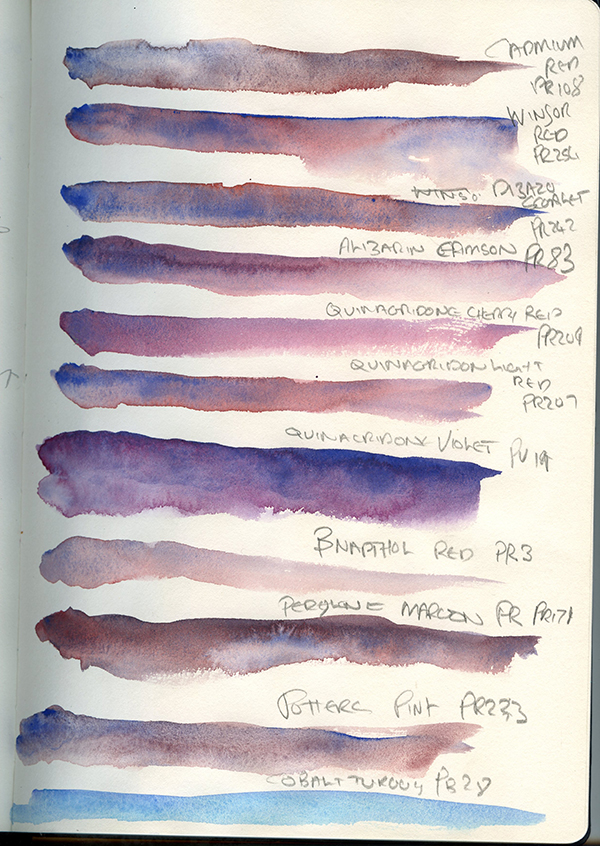 CADMIUM
RED
PR108
WINSOR
RED
PR254
DIZAZO
SCARLET
PR242
ALIZARIN CRIMSON PR83
QUINACRIDONE CHERRY RED
PR209
QUINACRIDON LIGHT
RED
PR207
QUINACRIDONE VIOLET PV19
BNAPTHOL RED PR3
PERYLONE MAROON PR PR171
POTTERS PINK PR233
COBALT TURQUOY PB28